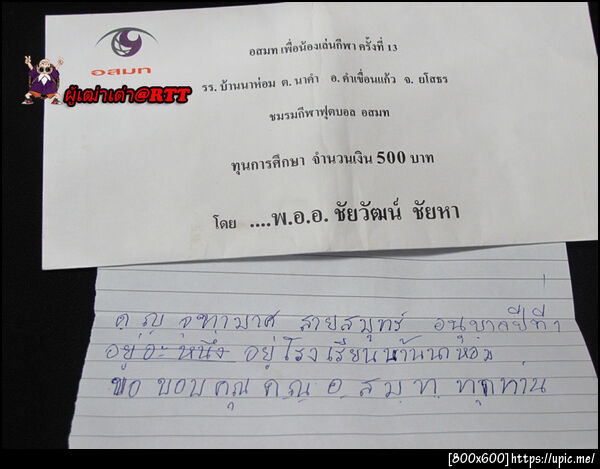 อสมท
ผู้เฒ่าเต่า@RTT
อสมท เพื่อน้องเล่นกีฬา ครั้งที่ 13
รร. บ้านนาห่อม ต. นาคำ อ. คำเขื่อนแก้ว จ. ยโสธร
ชมรมกีฬาฟุตบอล อสมท
ทุนการศึกษา จำนวนเงิน 500 บาท
โดย ....พ.อ.อ. ชัยวัฒน์ ชัยหา
ด ญ จุฑามาศ สายสมุทร์ อนุบาลปีที่ 1
อยู่ หนึ่ง อยู่โรงเรียนบ้านนาห่อม
ขอ ขอบ คุณ อ ส ม ท ทุกท่าน
[800x600]https://upic.me/